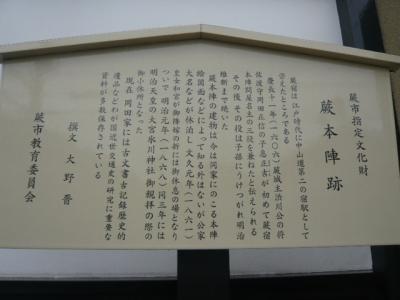 蕨市指定文化財
蕨本陣跡
蕨宿は江戸時代に中山道第二の宿駅として
栄えたところである
慶長十一年(一六〇六)蕨城主渋川公の将
佐渡守岡田正信の子息(正吉)が初めて蕨宿
本陣問屋名主の三役を兼ねたと伝えられる
その後その役は子孫にうけつがれ明治
維新まで続いた
蕨本陣の建物は今は同家にのこる本陣
絵図面などによって知る外はないが公家
大名などが休泊し文久元年(一八六一)
皇女和宮が御降嫁の折には御休息の場となり
ついで明治元年(一八六八)同三年には
明治天皇の大宮氷川神社御親拝の際の
御小休所となった
現在岡田家には古文書古記録歴史的
遺品などわが国近世交通史の研究に重要な
資料が多数保存されている
撰文 大野晋
蕨市教育委員会